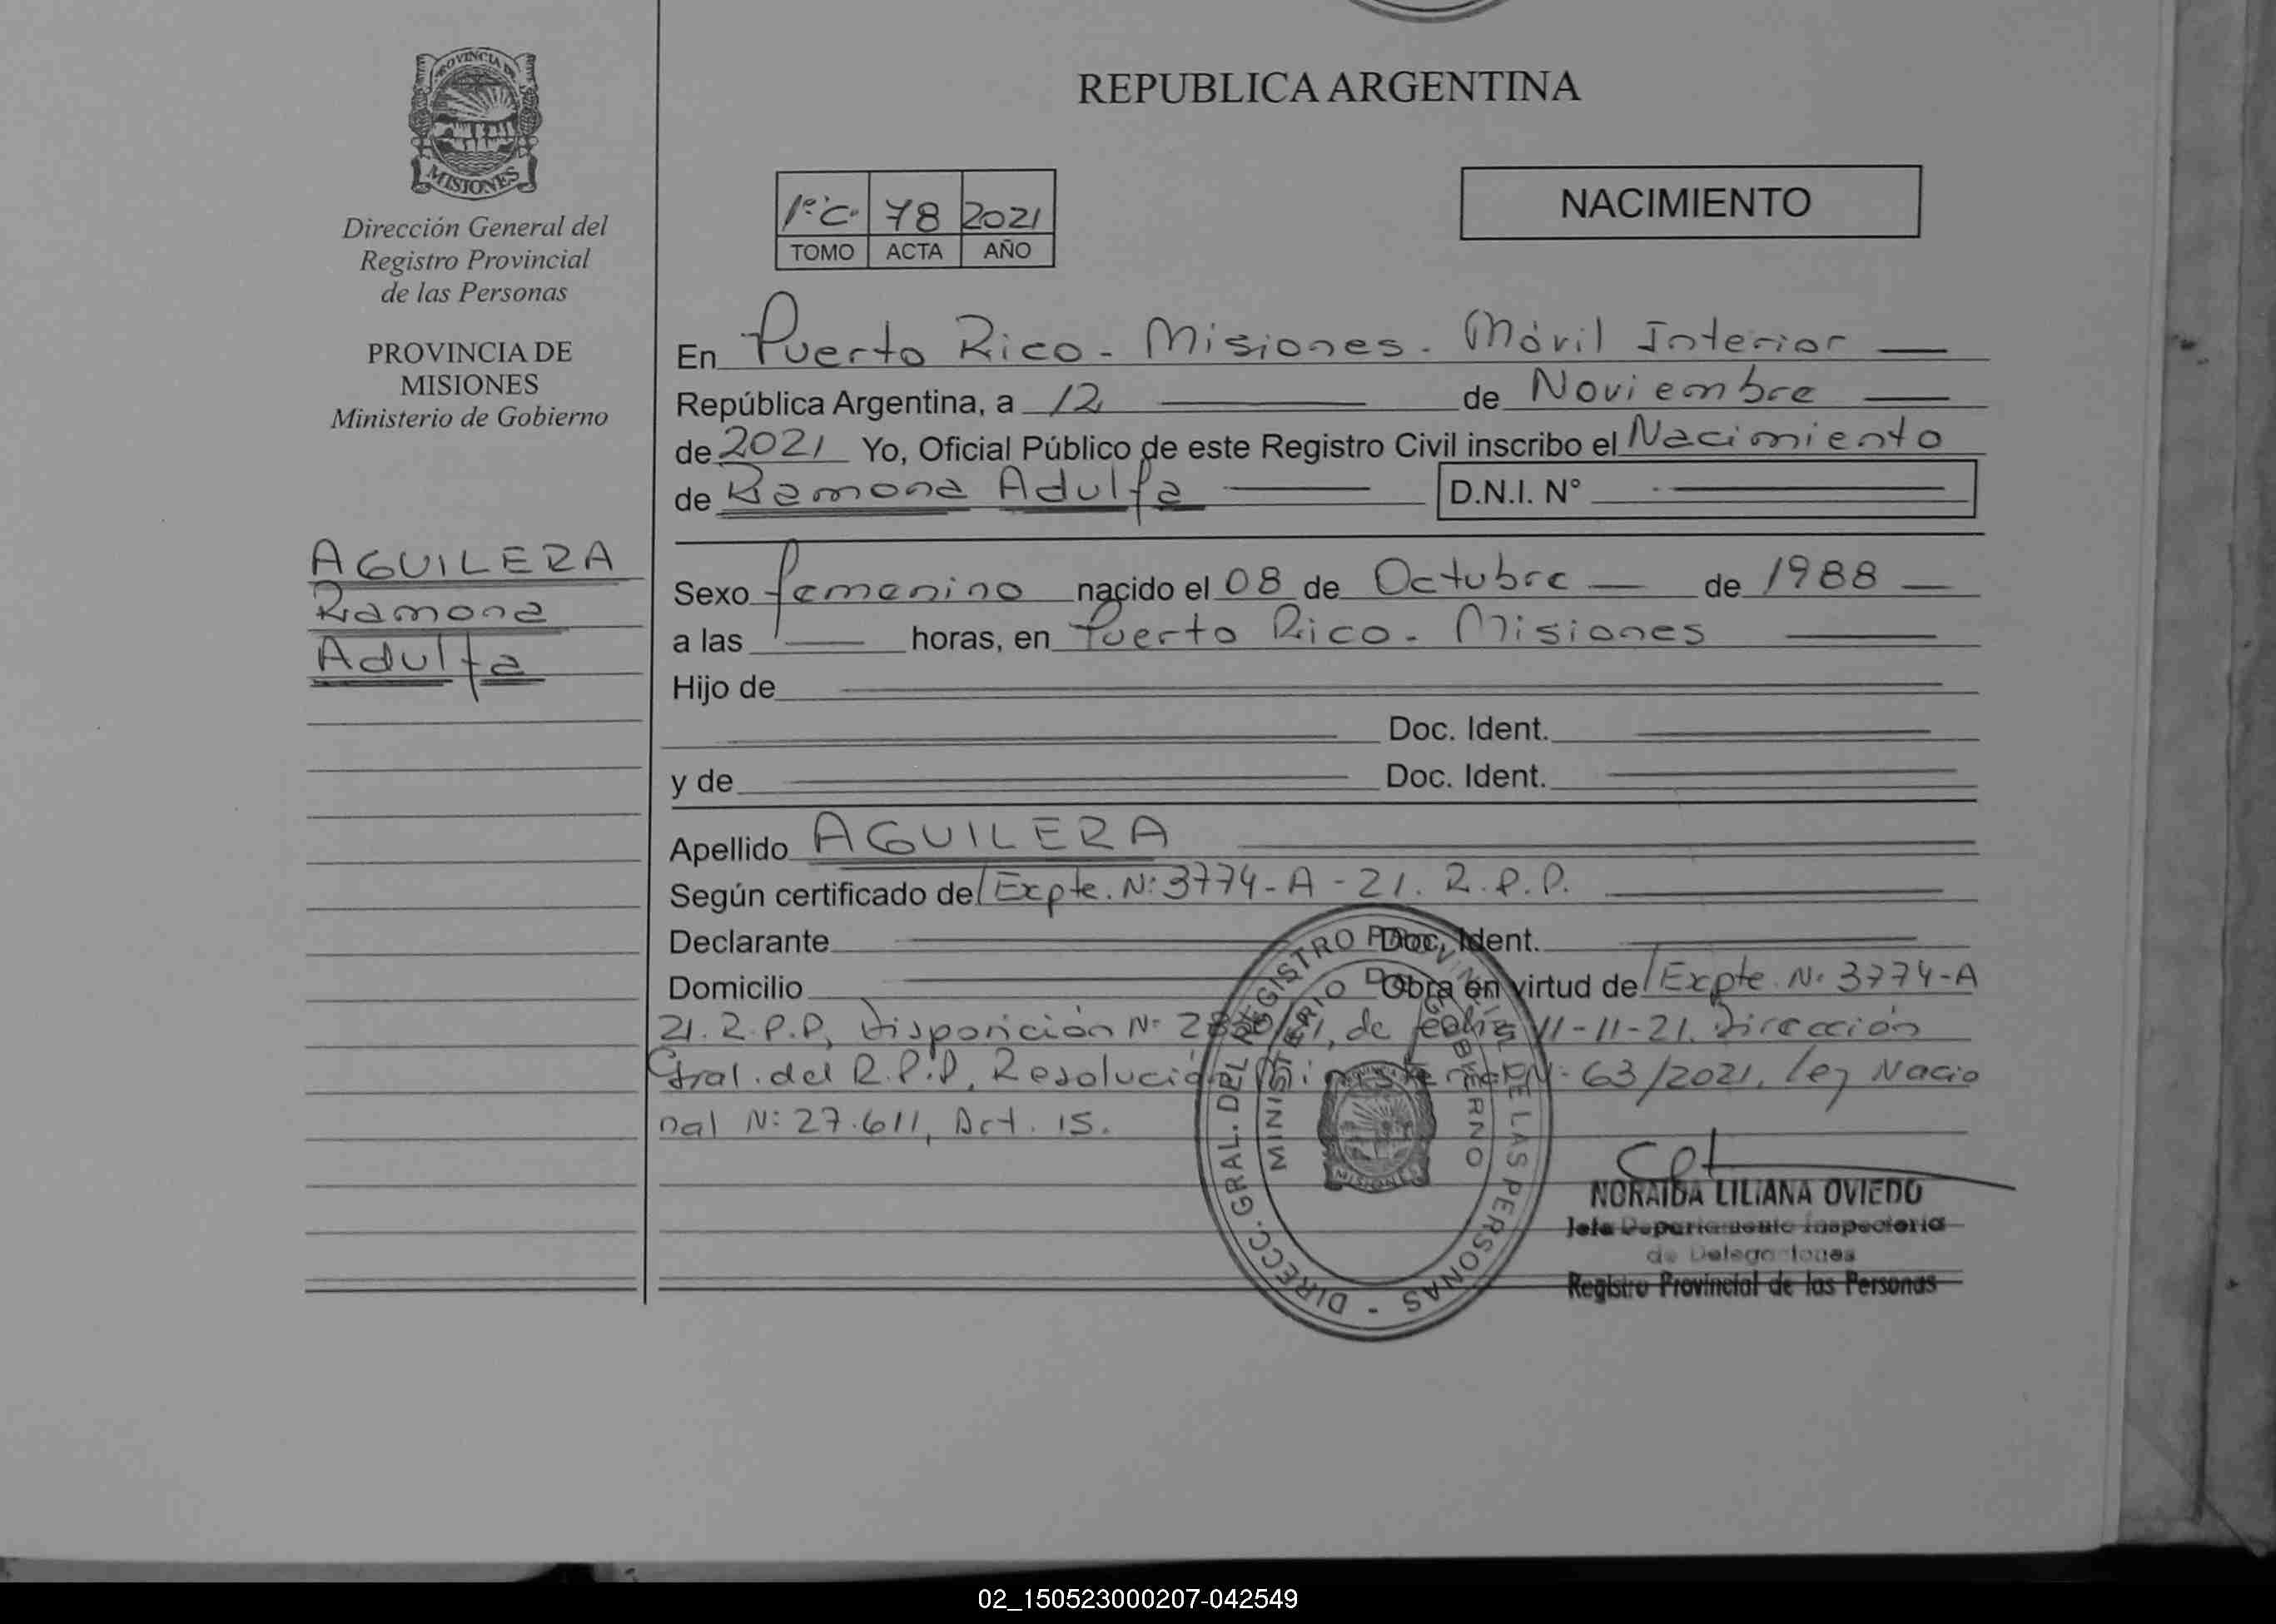 PROVINCIA DE
MISIONES
Dirección General del
Registro Provincial
de las Personas
PROVINCIA DE
MISIONES
Ministerio de Gobierno
AGUILERA
Ramona
Adulfa
REPUBLICA ARGENTINA
1º C. 78 2021
TOMO ACTA AÑO
NACIMIENTO
En Puerto Rico - Misiones. Móvil Interior
República Argentina, a 12 de Noviembre
de 2021 Yo, Oficial Público de este Registro Civil inscribo el Nacimiento
de Ramona Adulfa D.N.I. N°
Sexo femenino nacido el 08 de Octubre de 1988
a las horas, en Puerto Rico - Misiones
Hijo de
Doc. Ident.
y de Doc. Ident.
Apellido AGUILERA
Según certificado del Expte. Nº 3774-A-21. R.P.P.
Declarante Doc. Ident.
Domicilio Obra en virtud del Expte. Nº 3774-A
21. R.P.P, Disposición Nº de fecha 11-11-21. Dirección
Gral. del R.P.P, Resolución Nº 63/2021, Ley Nacio
nal Nº 27.611, Art. 15.
DIRECC. GRAL. DEL REGISTRO PROVINCIAL DE LAS PERSONAS -
MINISTERIO DE GOBIERNO
MISIONES
NORAIDA LILIANA OVIEDO
Jefe Departamento Inspectoria
de Delegaciones
Registro Provincial de las Personas
02_150523000207-042549